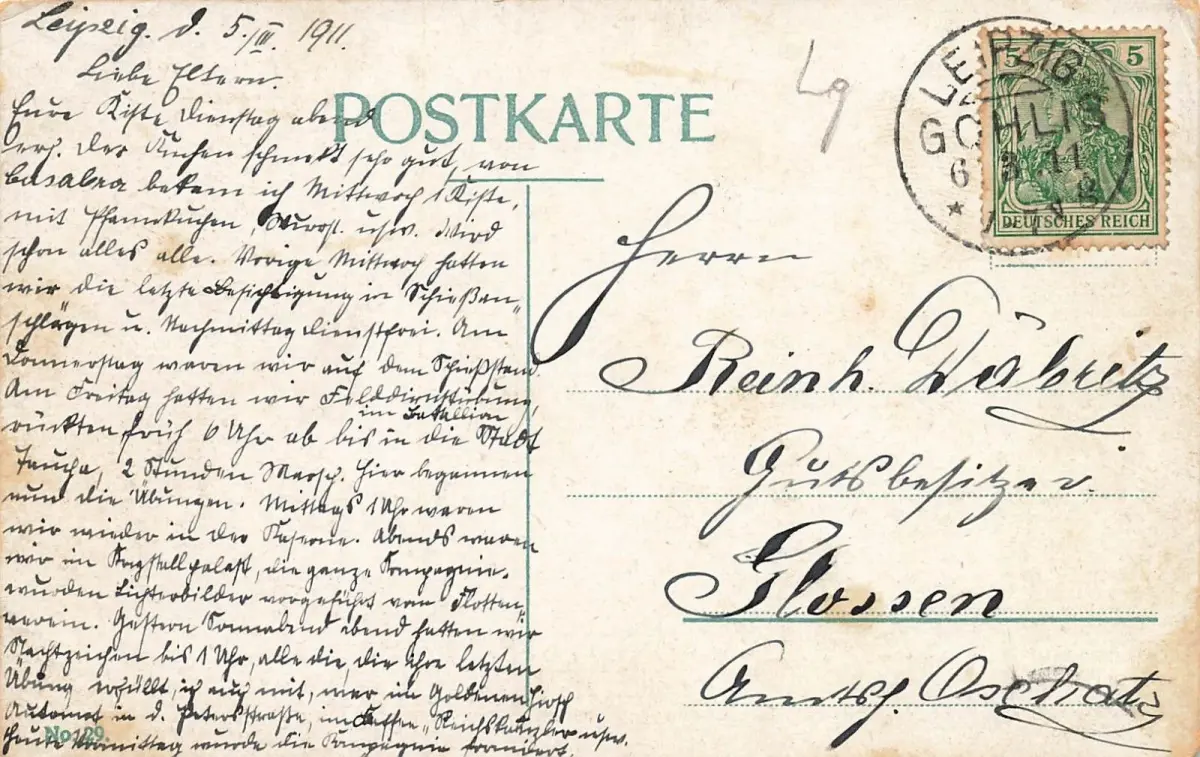 Leipzig. d. 5./III. 1911.
Liebe Eltern.
Eure Kiste Dienstag abend
erh. Der Kuchen schmekt sehr gut, von
bekam ich Mittwoch 1 Kiste,
mit Pfannkuchen, Wurst. usw. Wird
schon alles alle. Vorige Mittwoch hatten
wir die letzte Besichtigung in Schießan„
schlägen u. Nachmittag dienstfrei. Am
Donnerstag waren wir auf dem Schießstand.
Am Freitag hatten wir Felddienstübung
im Batallion
rückten früh 6 Uhr ab bis in die Stadt
Taucha, 2 Stunden Marsch. Hier begannen
nun die Übungen. Mittags 1 Uhr waren
wir wieder in der Kaserne. Abends waren
wir im Krystallpalast, die ganze Kompagnie.
wurden Lichterbilder vorgeführt vom Flotten„
verein. Gestern Sonnabend abend hatten wir
Nachtzeichen bis 1 Uhr, alle die, die ihre letzten
Übung erfüllt, ich auch mit, war im Goldenen Hirsch
Automat in d. Petersstraße, im Kaffee „Reichskanzler usw.
Heute Vormittag wurde die Kompagnie
No 129
POSTKARTE
Lg
LEIPZIG
GOHLIS
6 3 11
5 5
DEUTSCHES REICH
Herrn
Reinh. Däbritz
Gutsbesitzer.
Glossen
Amtsh. Oschatz